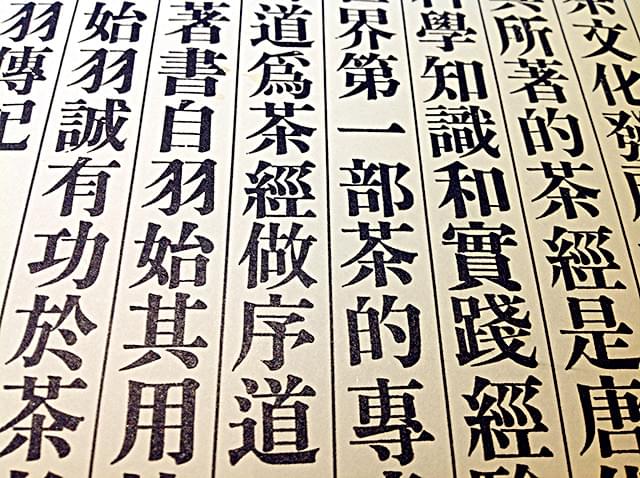 茶文化發
其所著的茶經是唐
科學知識和實踐經驗
世界第一部茶的專
道爲茶經做序道
著書自羽始其用
始羽誠有功於茶
羽傳記